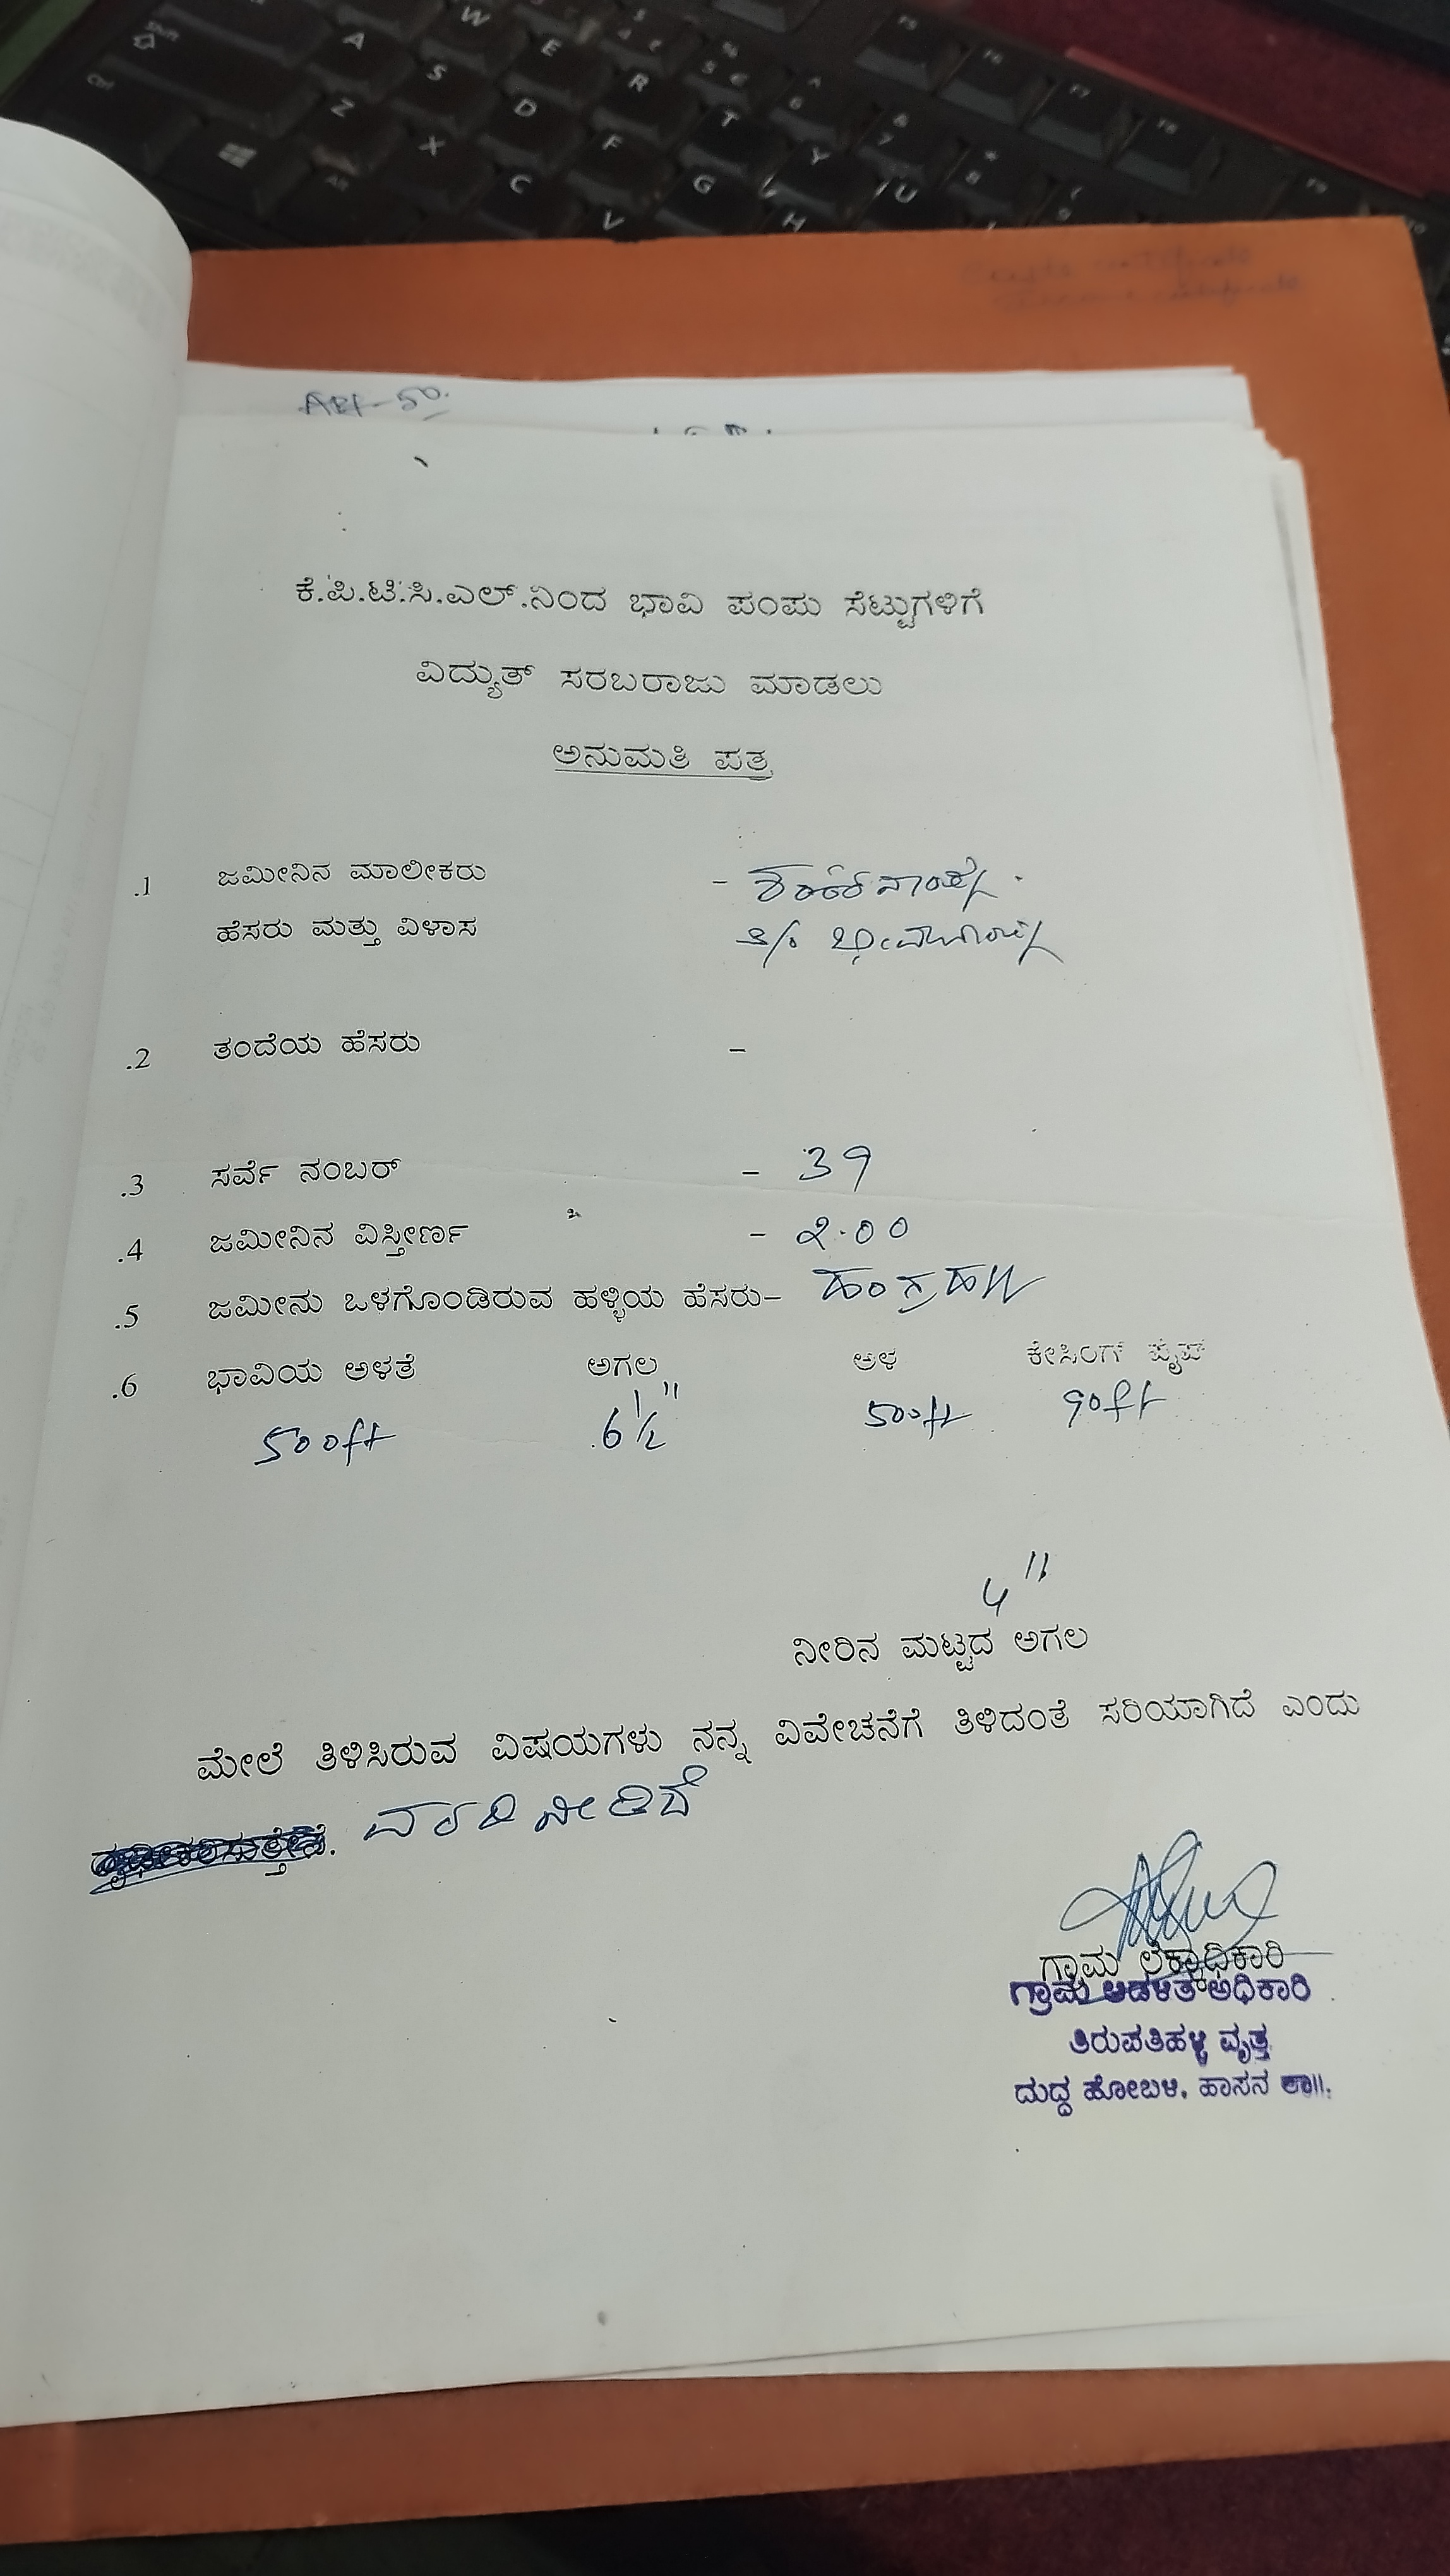 ಕೆ.ಪಿ.ಟಿ.ಸಿ.ಎಲ್.ನಿಂದ ಭಾವಿ ಪಂಪು ಸೆಟ್ಟುಗಳಿಗೆ
ವಿದ್ಯುತ್ ಸರಬರಾಜು ಮಾಡಲು
ಅನುಮತಿ ಪತ್ರ
.1 ಜಮೀನಿನ ಮಾಲೀಕರು -
ಹೆಸರು ಮತ್ತು ವಿಳಾಸ
.2 ತಂದೆಯ ಹೆಸರು -
.3 ಸರ್ವೆ ನಂಬರ್ - 39
.4 ಜಮೀನಿನ ವಿಸ್ತೀರ್ಣ - 2.00
.5 ಜಮೀನು ಒಳಗೊಂಡಿರುವ ಹಳ್ಳಿಯ ಹೆಸರು-
.6 ಭಾವಿಯ ಅಳತೆ ಅಗಲ ಆಳ ಕೇಸಿಂಗ್ ಪೈಪ
500ft 6½" 500ft 90ft
4"
ನೀರಿನ ಮಟ್ಟದ ಅಗಲ
ಮೇಲೆ ತಿಳಿಸಿರುವ ವಿಷಯಗಳು ನನ್ನ ವಿವೇಚನೆಗೆ ತಿಳಿದಂತೆ ಸರಿಯಾಗಿದೆ ಎಂದು
ಗ್ರಾಮ ಲೆಕ್ಕಾಧಿಕಾರಿ
ಗ್ರಾಮ ಆಡಳಿತ ಅಧಿಕಾರಿ
ತಿರುಪತಿಹಳ್ಳಿ ವೃತ್ತ
ದುದ್ದ ಹೋಬಳಿ. ಹಾಸನ ತಾ||.